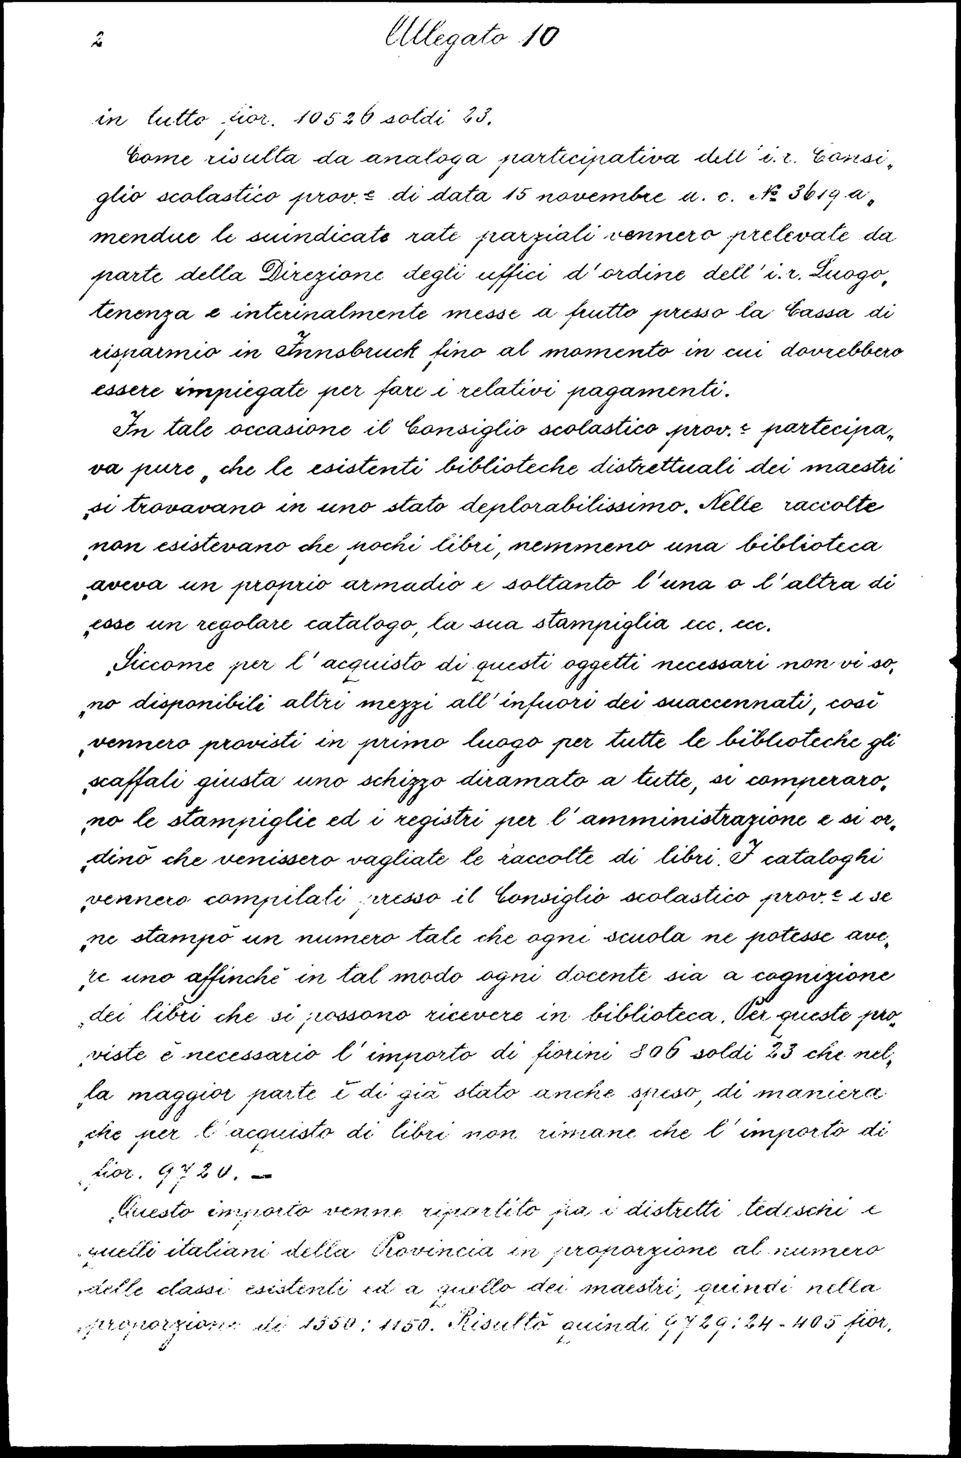 2
Allegato 10
in tutto fior. 10526 soldi 23.
Come risulta da analoga participativa dell' i.r. Consi„
glio scolastico prov.e di data 15 novembre u. c. No 3619 a„
mendue le suindicate rate parziali vennero prelevate da
parte della Direzione degli uffici d'ordine dell' i.r. Luogo„
tenenza e interinalmente messe a frutto presso la Cassa di
risparmio in Innsbruck fino al momento in cui dovrebbero
essere impiegate per fare i relativi pagamenti.
In tale occasione il Consiglio scolastico prov.e partecipa„
va pure „che le esistenti biblioteche distrettuali dei maestri
„si trovavano in uno stato deplorabilissimo. Nelle raccolte
„non esistevano che pochi libri, nemmeno una biblioteca
„aveva un proprio armadio e soltanto l'una o l'altra di
„esse un regolare catalogo, la sua stampiglia ecc. ecc.
„Siccome per l'acquisto di questi oggetti necessari non vi so„
„no disponibili altri mezzi all'infuori dei suaccennati, così
„vennero provisti in primo luogo per tutte le biblioteche gli
„scaffali giusta uno schizzo diramato a tutte, si comperaro„
„no le stampiglie ed i registri per l'amministrazione e si or„
„dinò che venissero vagliate le raccolte di libri. I cataloghi
„vennero compilati presso il Consiglio scolastico prov.e e se
„ne stampò un numero tale che ogni scuola ne potesse ave„
„re uno affinchè in tal modo ogni docente sia a cognizione
„dei libri che si possono ricevere in biblioteca. Per queste pro„
„viste è necessario l'importo di fiorini 806 soldi 23 che nel„
„la maggior parte è di già stato anche speso, di maniera
„che per l'acquisto di libri non rimane che l'importo di
„fior. 9720. —
„Questo importo venne ripartito fra i distretti tedeschi e
„quelli italiani della Provincia in proporzione al numero
„delle classi esistenti ed a quello dei maestri, quindi nella
„proporzione di 1350 : 1150. Risultò quindi 9729 : 24 - 405 fior.